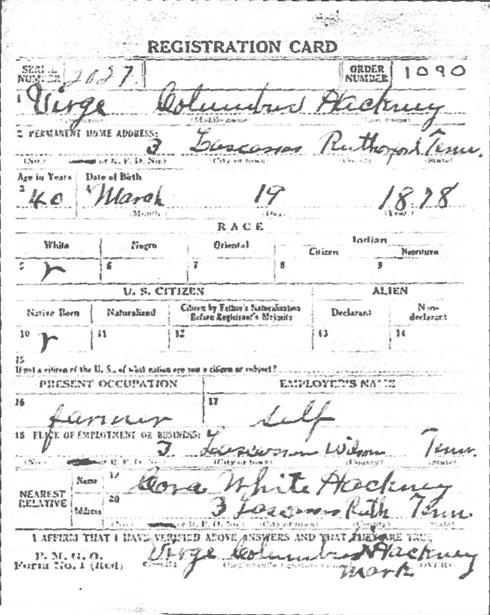 REGISTRATION CARD
SERIAL NUMBER 2027 ORDER NUMBER 1090
1 Virge Columbus Hackney
(Middle name)
2 PERMANENT HOME ADDRESS:
3 Lascassas Rutherford Tenn.
(No.) or R. F. D. No.) (City or town) (County) (State)
Age in Years Date of Birth
3 40 4 March 19 1878
(Month) (Day) (Year)
RACE
White Negro Oriental Indian
Citizen Noncitizen
5 6 7 8 9
U. S. CITIZEN ALIEN
Native Born Naturalized Citizen by Father's Naturalization Before Registrant's Majority Declarant Non-declarant
10 11 12 13 14
15
If not a citizen of the U. S., of what nation are you a citizen or subject?
PRESENT OCCUPATION EMPLOYER'S NAME
16 farmer 17 self
18 PLACE OF EMPLOYMENT OR BUSINESS:
3 Lascassas Wilson Tenn.
(No.) R. F. D. (City or town) (County) (State)
NEAREST RELATIVE Name 19 Cora White Hackney
Address 20 3 Lascassas Ruth Tenn.
(No.) or R. F. D. No.) (City or town) (County) (State)
I AFFIRM THAT I HAVE VERIFIED ABOVE ANSWERS AND THAT THEY ARE TRUE
P. M. G. O.
Form No. 1 (Red) Virge Columbus Hackney
(OVER)
Mark